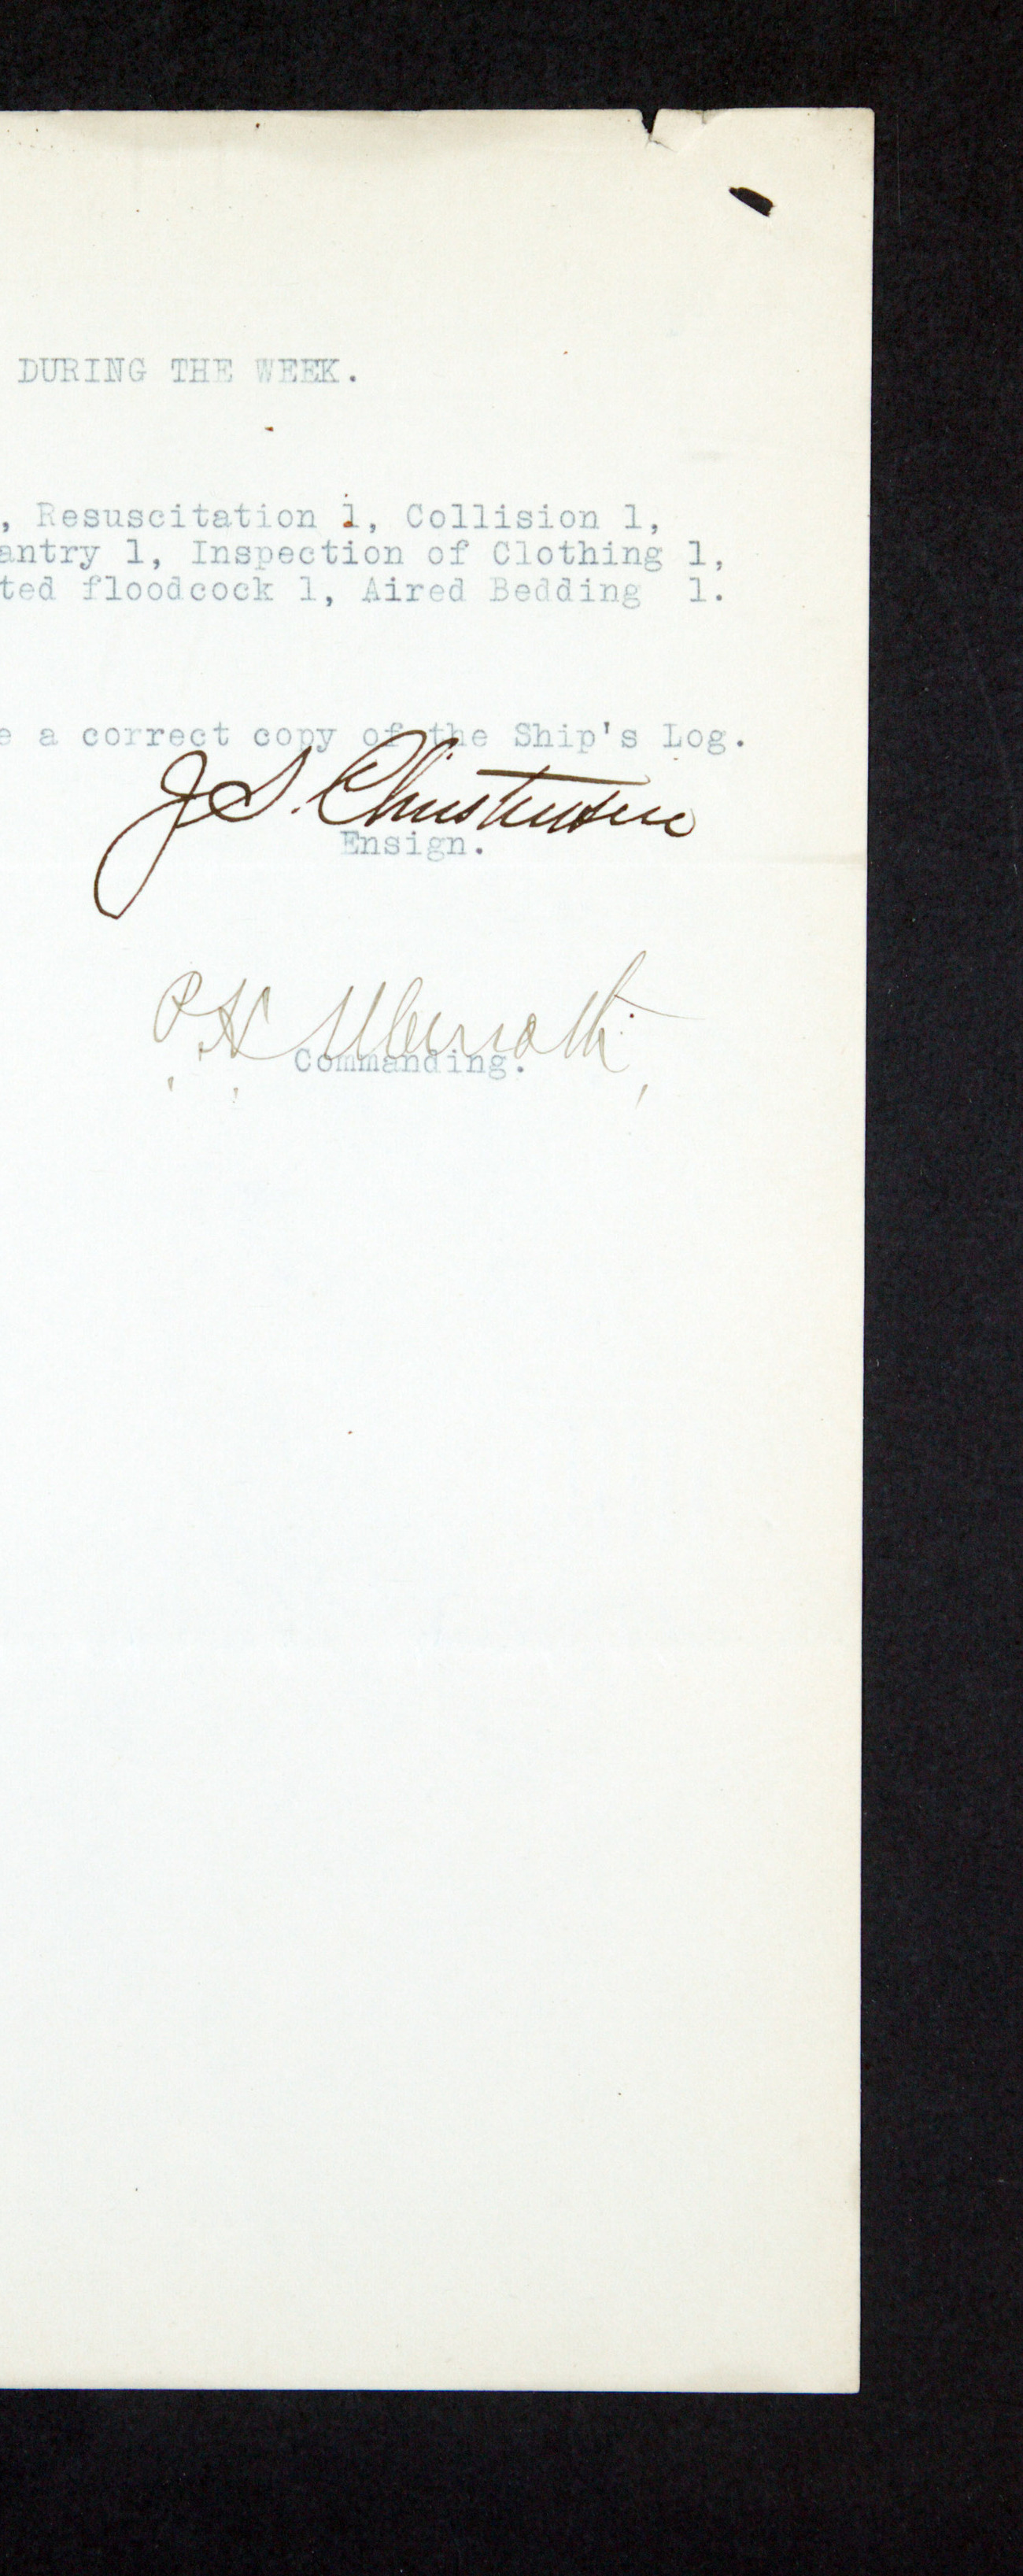 DURING THE WEEK.
, Resuscitation 1, Collision 1,
antry 1, Inspection of Clothing 1,
ted floodcock 1, Aired Bedding 1.
e a correct copy of the Ship's Log.
J S. Christensen
Ensign.
P. H. Uberroth
Commanding.